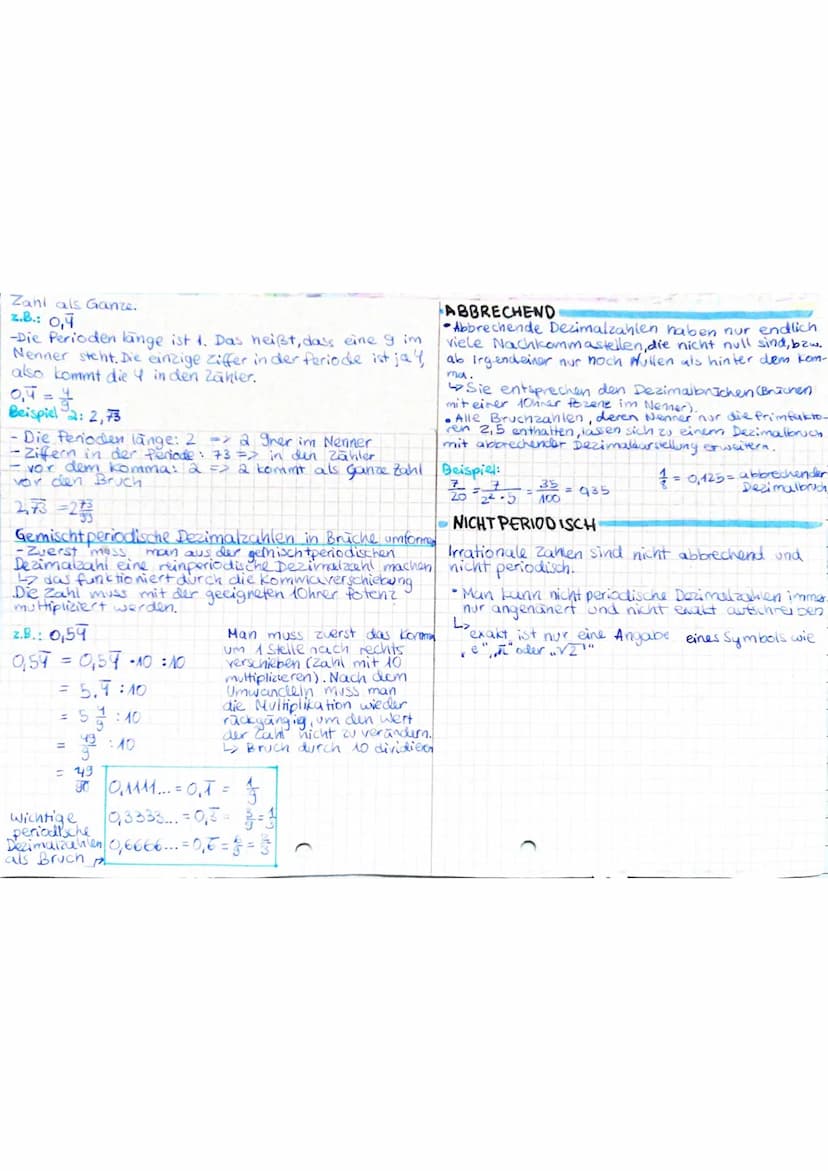 Zahl als Ganze.
z.B.: 0,4̅
-Die Perioden länge ist 1. Das heißt, dass eine 9 im
Nenner steht. Die einzige Ziffer in der Periode ist ja 4,
also kommt die 4 in den Zähler.
0,4̅ = 4/9
Beispiel 2: 2,7̅3̅
- Die Perioden länge: 2 => 2 9ner im Nenner
- Ziffern in der Periode: 73 => in den Zähler
- vor dem Komma: 2 => 2 kommt als Ganze Zahl
vor den Bruch
2,7̅3̅ = 2 73/99
Gemischtperiodische Dezimalzahlen in Brüche umformen
- Zuerst muss man aus der gemischtperiodischen
Dezimalzahl eine reinperiodische Dezimalzahl machen
↳ das funktioniert durch die Kommaverschiebung
Die Zahl muss mit der geeigneten 10ner Potenz
multipliziert werden.
z.B.: 0,54̅
0,54̅ = 0,54̅ · 10 : 10
= 5,4̅ : 10
= 5 4/9 : 10
= 49/9 : 10
= 49/90
Man muss zuerst das Komma
um 1 Stelle nach rechts
verschieben (Zahl mit 10
multiplizieren). Nach dem
Umwandeln muss man
die Multiplikation wieder
rückgängig, um den Wert
der Zahl nicht zu verändern.
↳ Bruch durch 10 dividieren
Wichtige
periodische
Dezimalzahlen
als Bruch
0,1111... = 0,1̅ = 1/9
0,3333... = 0,3̅ = 3/9 = 1/3
0,6666... = 0,6̅ = 6/9 = 2/3
ABBRECHEND
• Abbrechende Dezimalzahlen haben nur endlich
viele Nachkommastellen, die nicht null sind, bzw.
ab irgendeiner nur noch Nullen als hinter dem Kom-
ma.
↳ Sie entsprechen den Dezimalbrüchen (Brüchen
mit einer 10ner Potenz im Nenner).
• Alle Bruchzahlen, deren Nenner nur die Primfakto-
ren 2,5 enthalten, lassen sich zu einem Dezimalbruch
mit abbrechender Dezimaldarstellung erweitern.
Beispiel:
7/20 = 7/2² · 5 = 35/100 = 0,35
1/8 = 0,125 = abbrechender
Dezimalbruch
NICHT PERIODISCH
Irrationale Zahlen sind nicht abbrechend und
nicht periodisch.
• Man kann nicht periodische Dezimalzahlen immer
nur angenähert und nicht exakt aufschreiben
↳ exakt ist nur eine Angabe eines Symbols wie
„e", „π" oder „√2"